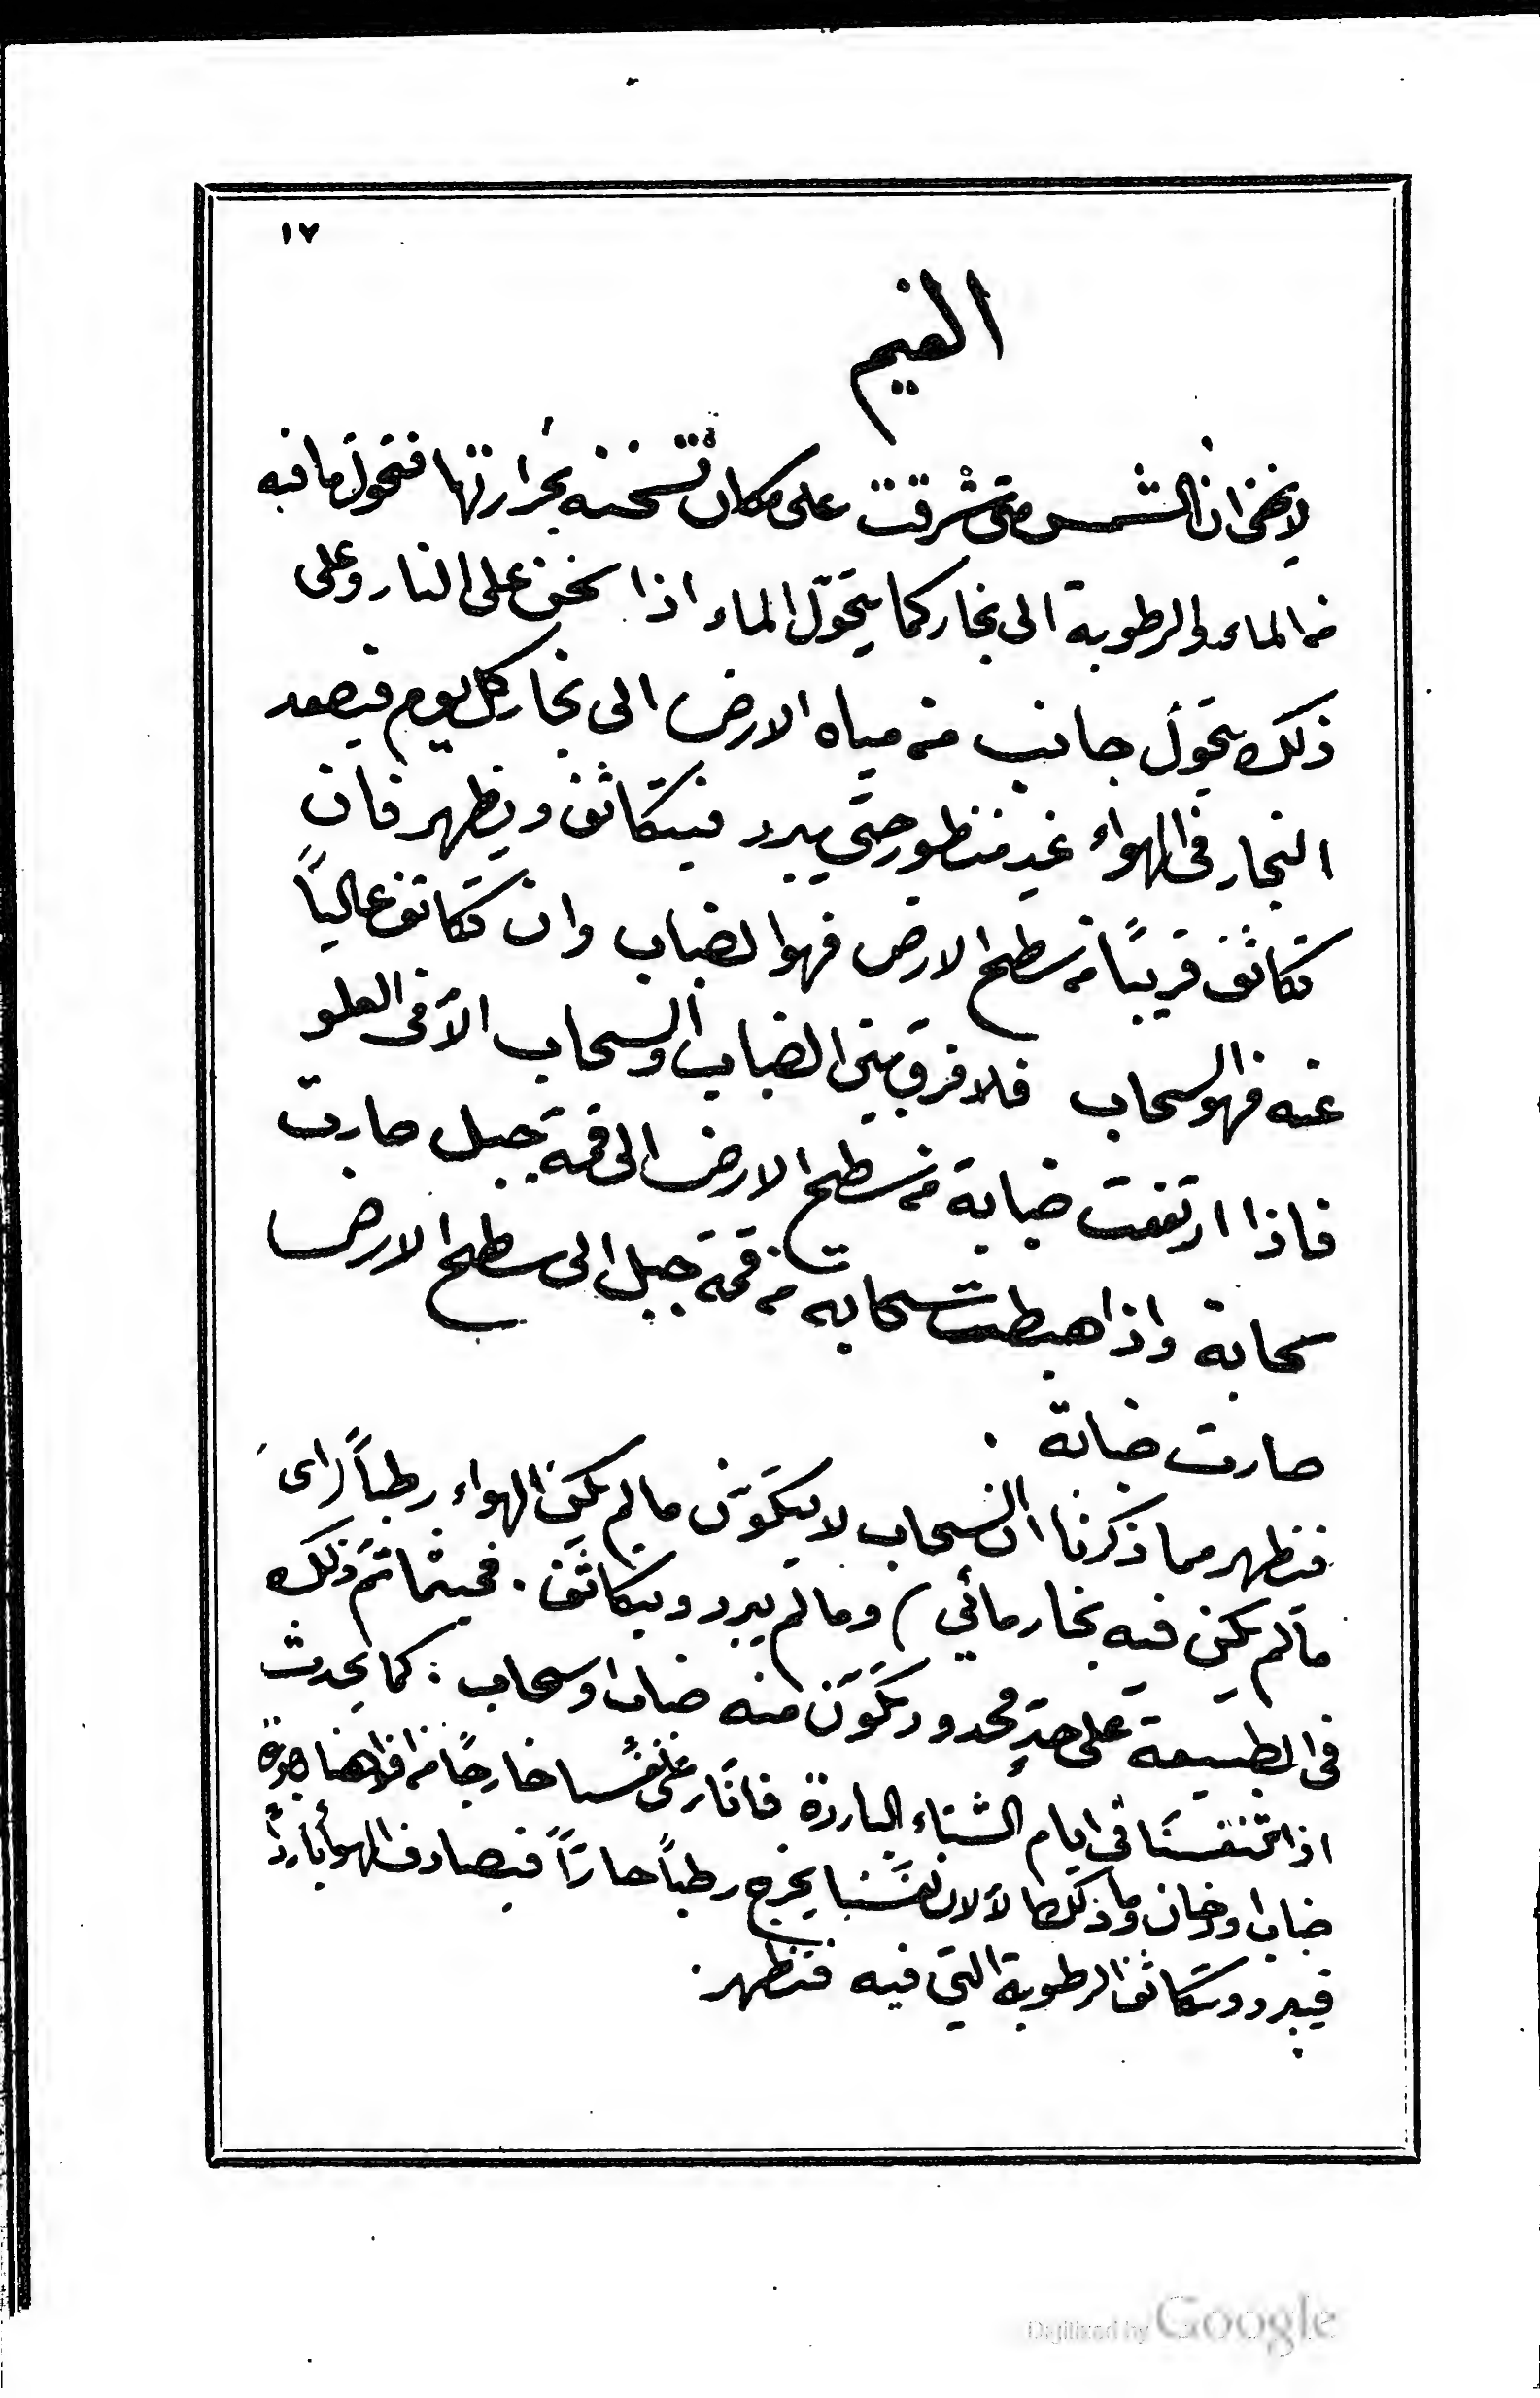 ١٧
الغيم
لا يخفى ان الشمس متى شرقت على مكان تسخنه بحرارتها فتحوّل ما فيه
من الماء والرطوبة الى بخار كما يتحوّل الماء اذا سخن على النار وعلى
ذلك يتحوّل جانب من مياه الارض الى بخار كل يوم فيصعد
البخار في الهواء غير منظور حتى يبرد فيتكاثف ويظهر فان
تكاثف قريبًا من سطح الارض فهو الضباب وان تكاثف عاليًا
عنه فهو السحاب فلا فرق بين الضباب والسحاب الّا في العلو
فاذا ارتفعت ضبابة من سطح الارض الى قمة جبل صارت
سحابة واذا هبطت سحابة من قمة جبل الى سطح الارض
صارت ضبابة .
فيظهر مما ذكرنا ان السحاب لا يتكوّن ما لم يكن الهواء رطبًا (اي
ما لم يكن فيه بخار مائي) وما لم يبرد ويتكاثف . فحيثما تمّ ذلك
في الطبيعة على حدٍ محدود يتكوّن منه ضباب او سحاب : كما يحدث
اذا تنفسنا في ايام الشتاء الباردة فانّا نرى نفسنا خارجًا من افواهنا بصورة
ضباب او دخان وما ذلك الّا لان نفسنا يخرج رطبًا حارًّا فيصادف الهواء باردًا
فيبرد وتتكاثف الرطوبة التي فيه فتظهر .
Digitized by Google